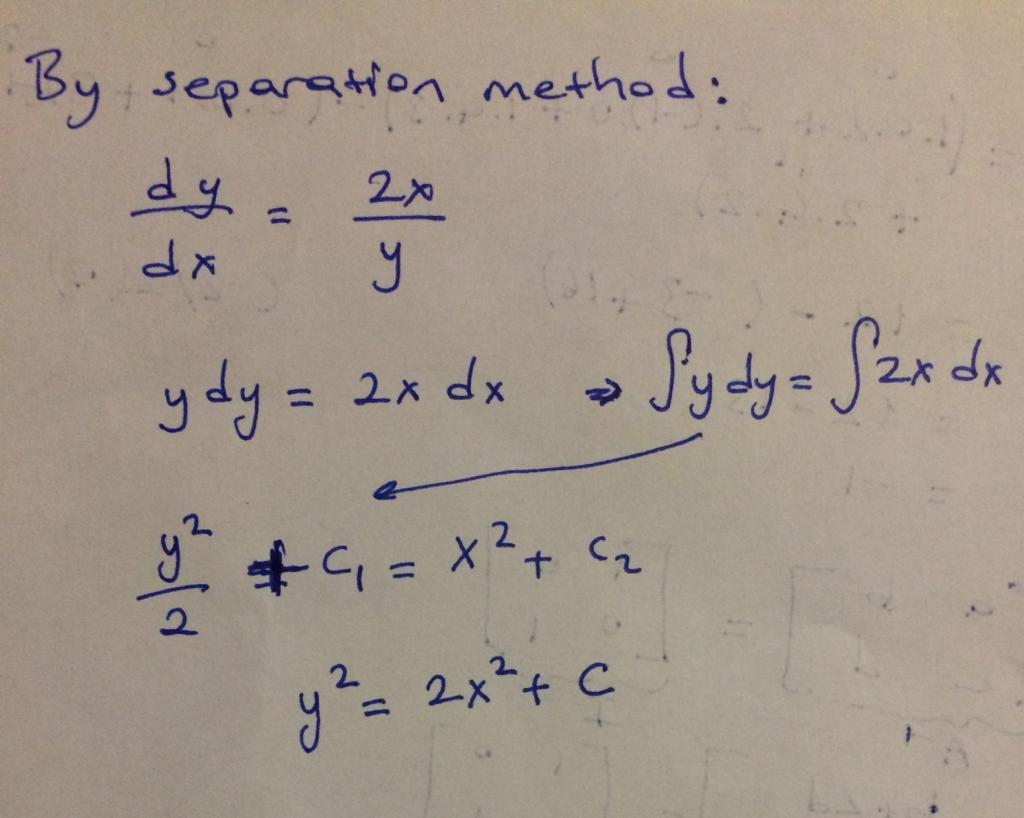 By separation method:
dy/dx = 2x/y
y dy = 2x dx ⇒ ∫y dy = ∫2x dx
y²/2 + C₁ = x² + C₂
y² = 2x² + C